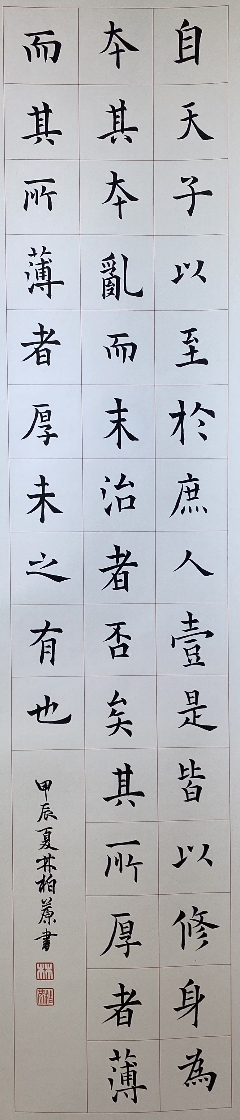 自天子以至於庶人壹是皆以修身為
本其本亂而末治者否矣其所厚者薄
而其所薄者厚未之有也
甲辰夏林柏蒝書